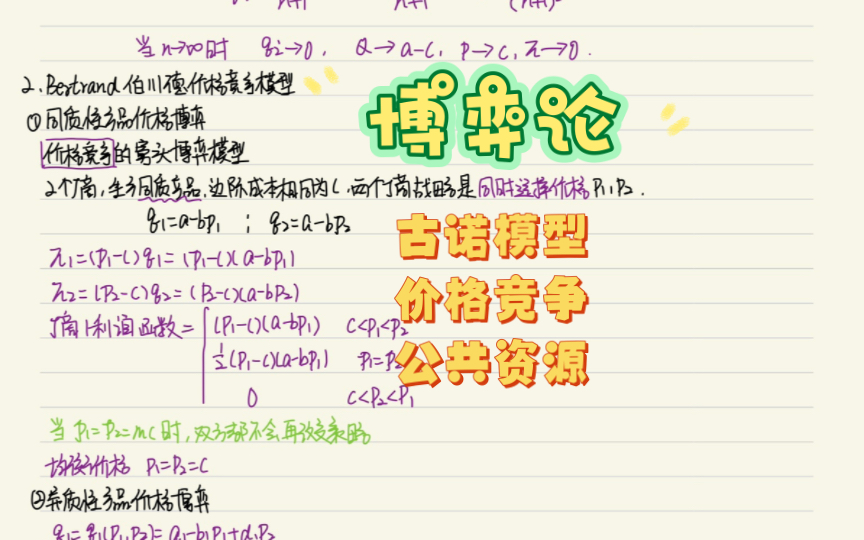 当n→∞时 qi→0, Q→a-c, p→c, π→0.
2、Bertrand 伯川德价格竞争模型
①同质性产品价格博弈
价格竞争的寡头博弈模型
2个厂商,生产同质产品,边际成本相同为C,两个厂商战略是同时选择价格P1,P2.
q1=a-bp1 ; q2=a-bp2
π1=(p1-c)q1=(p1-c)(a-bp1)
π2=(p2-c)q2=(p2-c)(a-bp2)
厂商1利润函数= (p1-c)(a-bp1) c<p1<p2
1/2(p1-c)(a-bp1) p1=p2
0 c<p2<p1
当p1=p2=mc时,双方都不会再改变策略
均衡价格 p1=p2=c
②异质性产品价格博弈
q1=q1(p1,p2)=a1-b1p1+d1p2
博弈论
古诺模型
价格竞争
公共资源